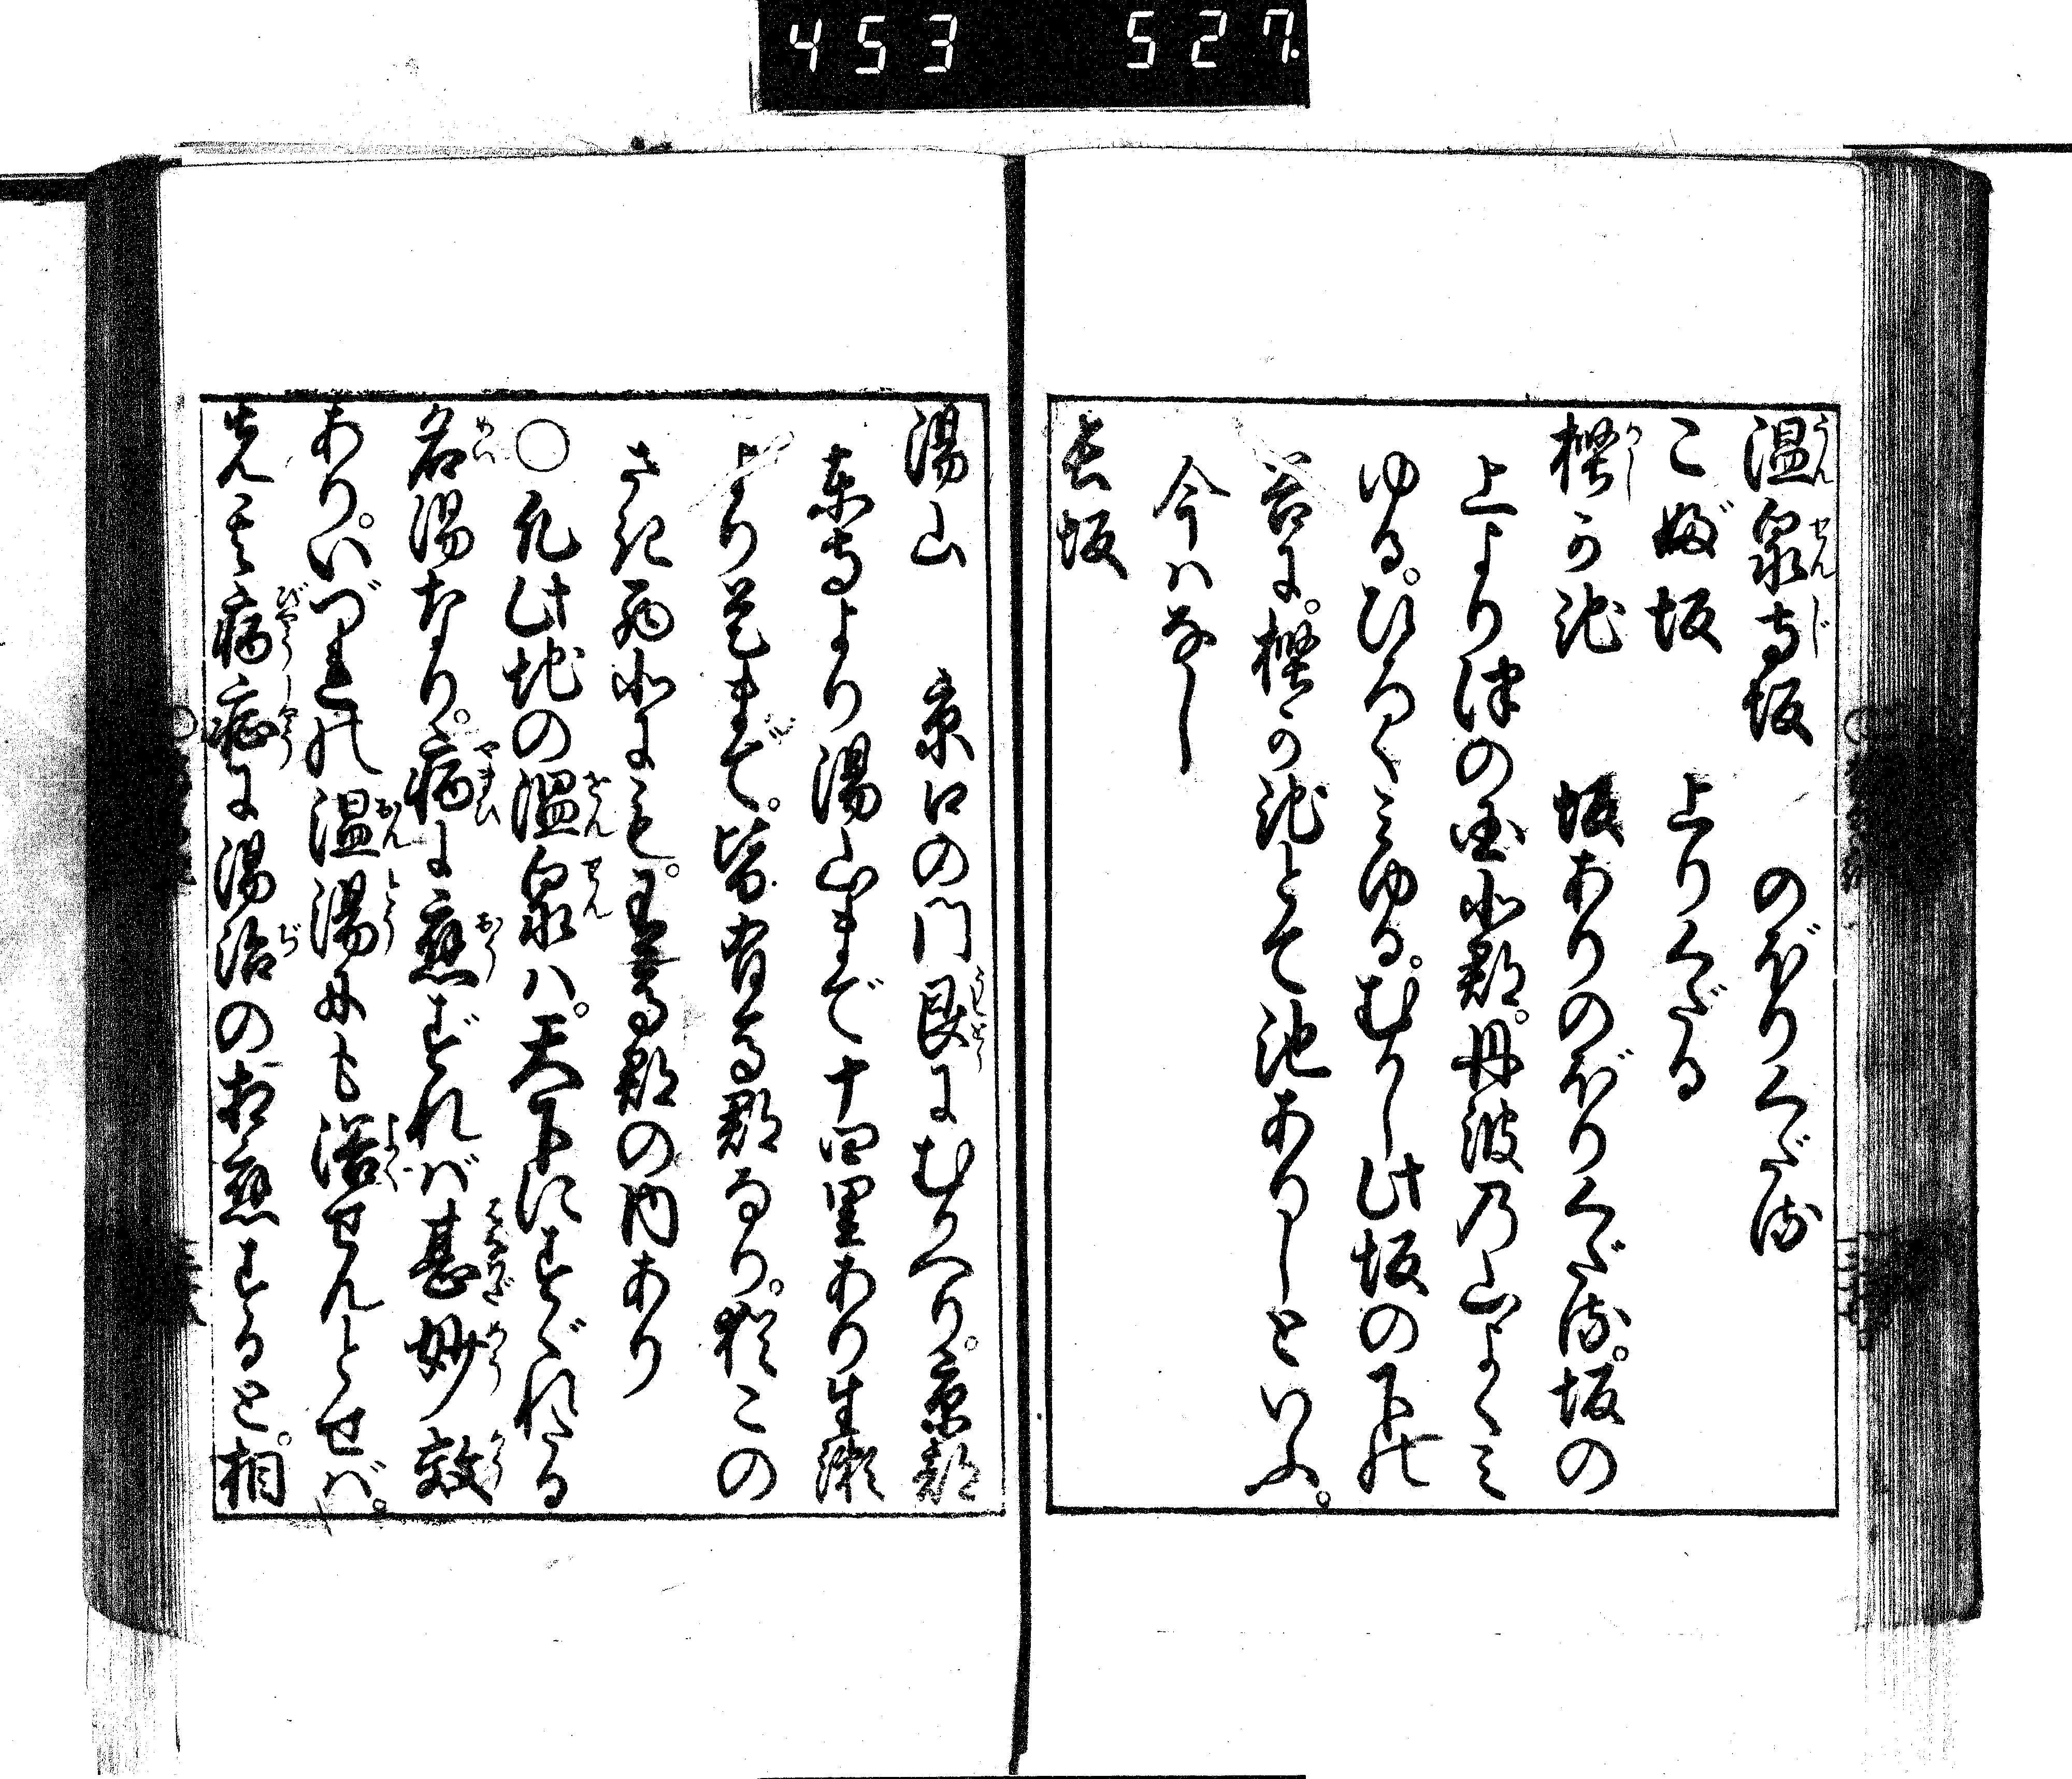 453 527
温泉寺坂 のぼりくだり
こぶ坂 上りくだる
樫か池 坂ありのぼりくだり。坂の
上より津の国北郡。丹波乃山よくミ
ゆる。ひろくミゆる。むかし此坂の下の
谷に。樫か池とて池ありしといふ。
今ハなし
長坂
湯山 京口の門艮にむかへり。京都
東寺より湯山まで十四里あり生瀬
より是まで。皆有馬郡なり。猶この
さき西北にも。有馬郡の内あり
○凡此地の温泉ハ。天下にすぐれたる
名湯なり。病に應ずれバ甚妙効
あり。いづれの温湯にも浴せんとせバ。
先其病症に湯治の相應すると。相